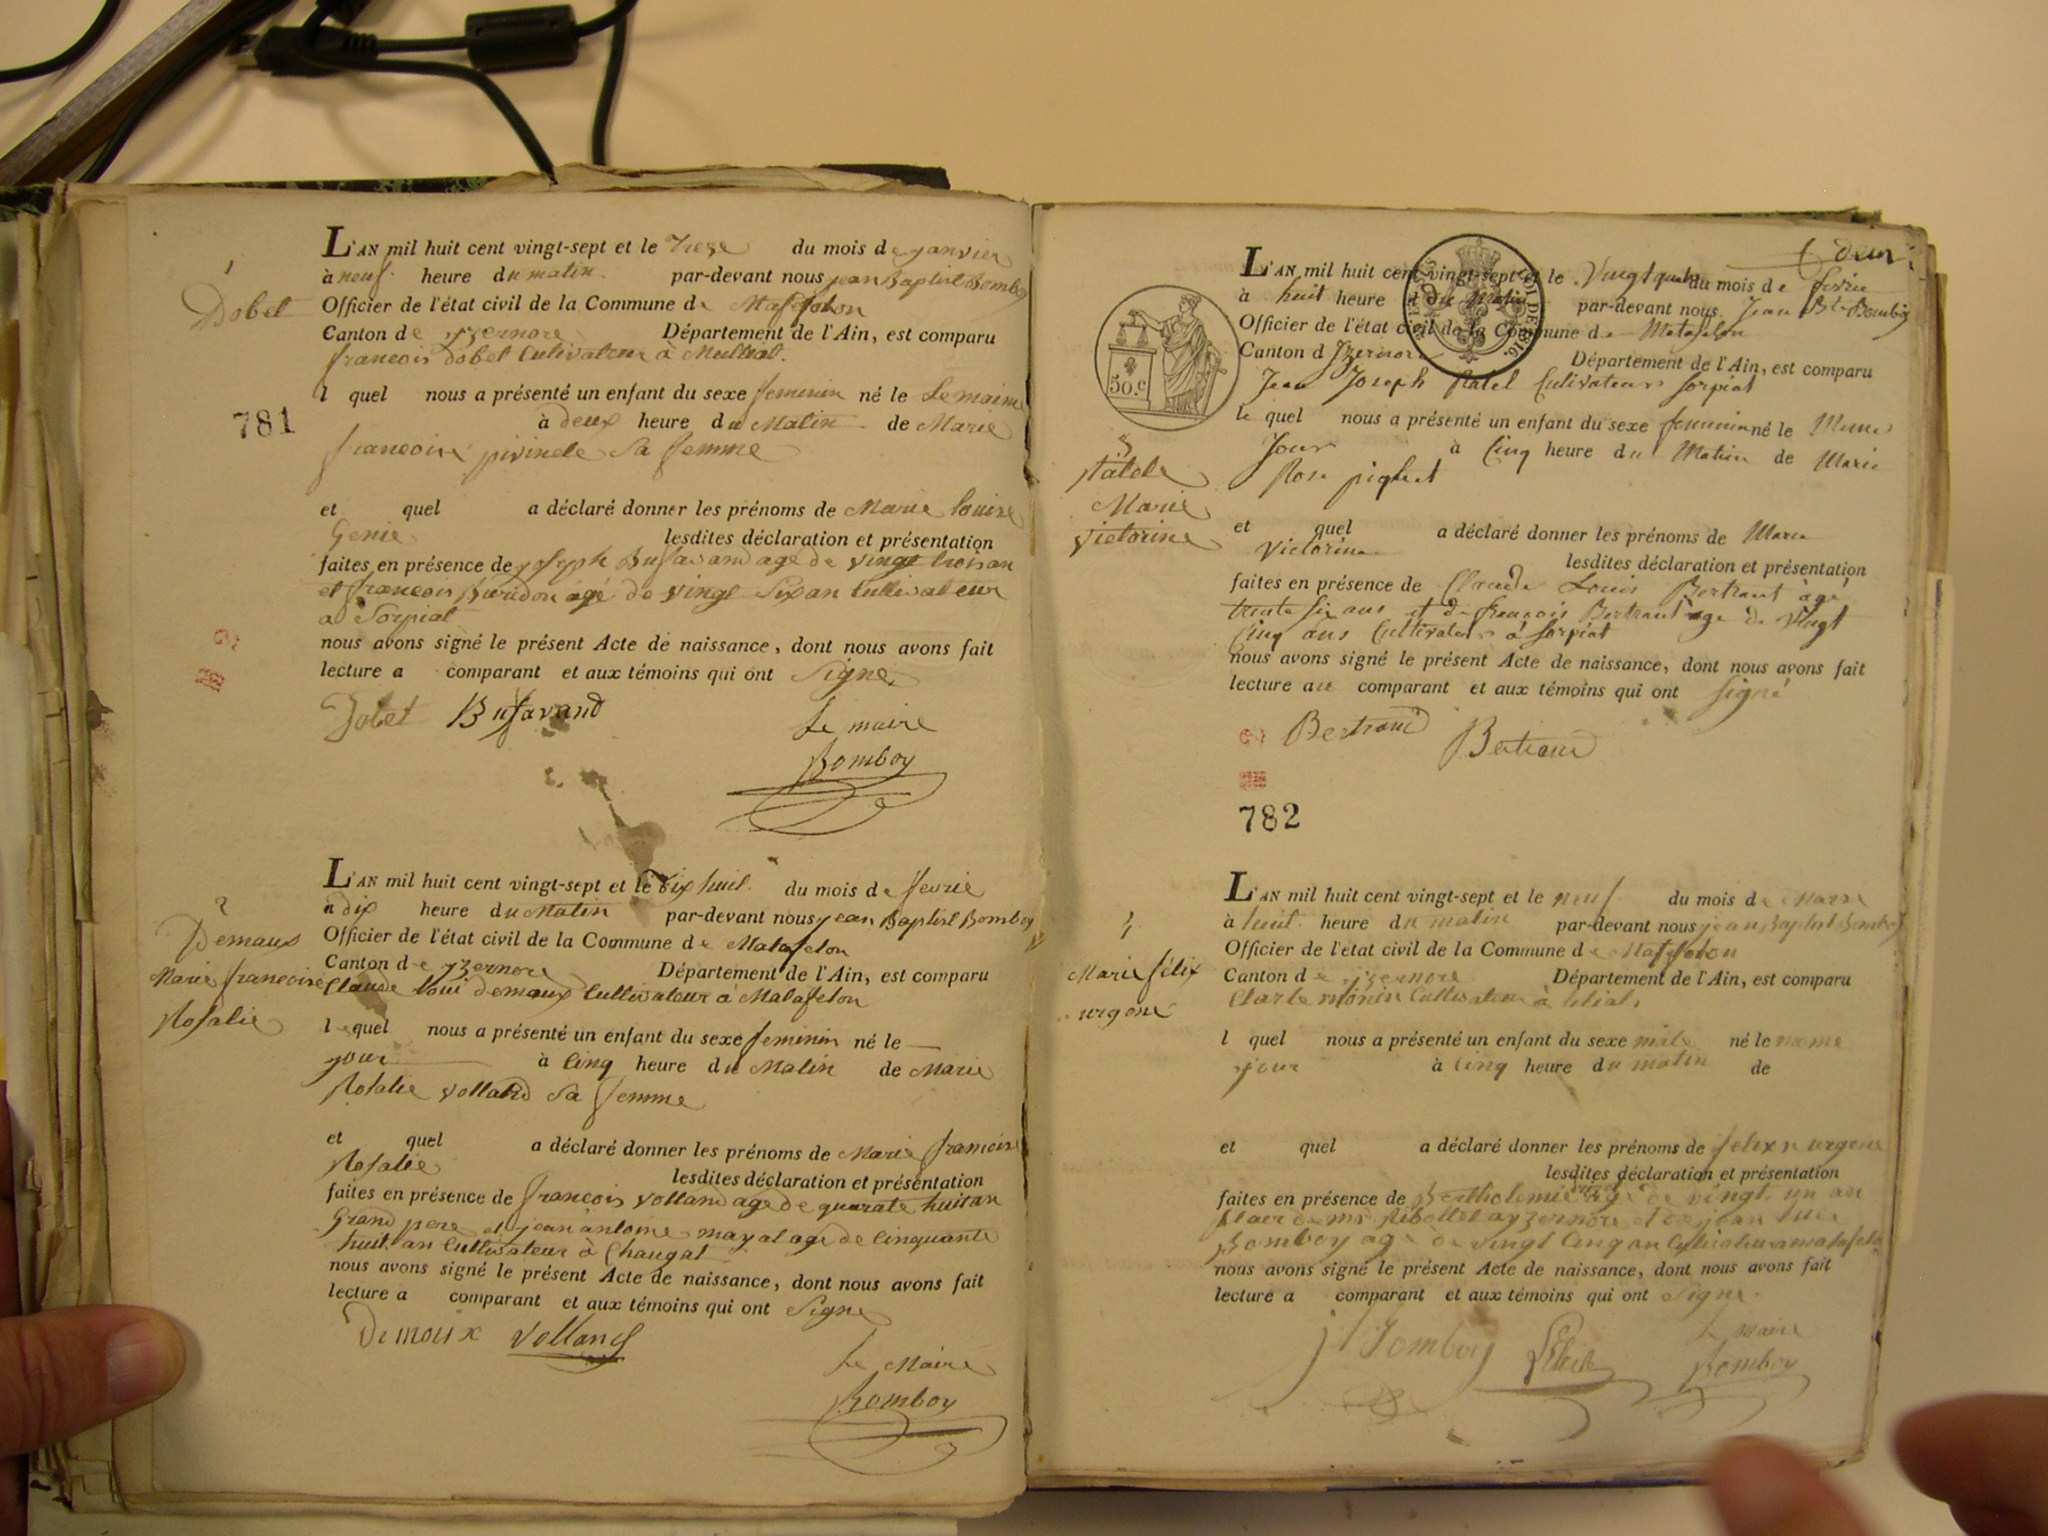 1
Dobet
781
L'AN mil huit cent vingt-sept et le treze du mois de janvier
à neuf heure du matin par-devant nous jean Baptist Bomboy
Officier de l'état civil de la Commune de Matafelon
Canton de yzernore Département de l'Ain, est comparu
francois dobet Cultivateur à
l quel nous a présenté un enfant du sexe feminin né le
à deux heure du Matin de Marie
francoise sa femme
et quel a déclaré donner les prénoms de Marie louise
Genie lesdites déclaration et présentation
faites en présence de joseph Bufavand age de vingt troisan
et francois Buridon agé de vingt six an Cultivateur
a Sorpiat
nous avons signé le présent Acte de naissance, dont nous avons fait
lecture a comparant et aux témoins qui ont Signe
Dobet Bufavand
Le maire
Bomboy
2
Demaux
Marie francoise
Rosalie
L'AN mil huit cent vingt-sept et le dix huit du mois de fevrie
a dix heure du Matin par-devant nous jean Baptist Bomboy
Officier de l'état civil de la Commune de Matafelon
Canton de yzernore Département de l'Ain, est comparu
Claude loui demaux Cultivateur à Matafelon
le quel nous a présenté un enfant du sexe feminin né le
jour à cinq heure du Matin de Marie
Rosalie volland sa femme
et quel a déclaré donner les prénoms de Marie francoise
Rosalie lesdites déclaration et présentation
faites en présence de francois volland age de quarate huit an
Grand pere et jean antoine mayat age de cinquante
huit an Cultivateur à Chaugat
nous avons signé le présent Acte de naissance, dont nous avons fait
lecture a comparant et aux témoins qui ont Signe
Demoux Volland
Le Maire
Bomboy
deux
50.c
3
Marie
victorine
L'AN mil huit cent vingt-sept et le Vingt quatre du mois de fevrie
à huit heure du Matin par-devant nous Jean Bte Bomboy
Officier de l'état civil de la Commune de Matafelon
Canton d Izernore Département de l'Ain, est comparu
Jean Joseph Cultivateur Sorpiat
le quel nous a présenté un enfant du sexe feminin né le Meme
Jour à Cinq heure du Matin de Marie
Rose piquet
et quel a déclaré donner les prénoms de Marie
Victorine lesdites déclaration et présentation
faites en présence de Claude Louis Bertrant agé
trente six ans et de françois Bertrant age de vingt
Cinq ans Cultivateurs à Sorpiat
nous avons signé le présent Acte de naissance, dont nous avons fait
lecture au comparant et aux témoins qui ont signé
Bertrand Bertrand
782
Marie félix
urgone
L'AN mil huit cent vingt-sept et le neuf du mois de Marse
à huit heure du matin par-devant nous jean Baptist Bomboy
Officier de l'état civil de la Commune de Matafelon
Canton de yzernore Département de l'Ain, est comparu
monin Cultivateur à
l quel nous a présenté un enfant du sexe male né le meme
jour à cinq heure du matin de
et quel a déclaré donner les prénoms de felix urgone
lesdites déclaration et présentation
faites en présence de Bertholemie age de vingt un an
Clair de mr Ribollet a yzernore et de jean luc
Bomboy age de vingt cinq an Cultivateur a matafelon
nous avons signé le présent Acte de naissance, dont nous avons fait
lecture a comparant et aux témoins qui ont Signe
Bomboy
le maire
Bomboy